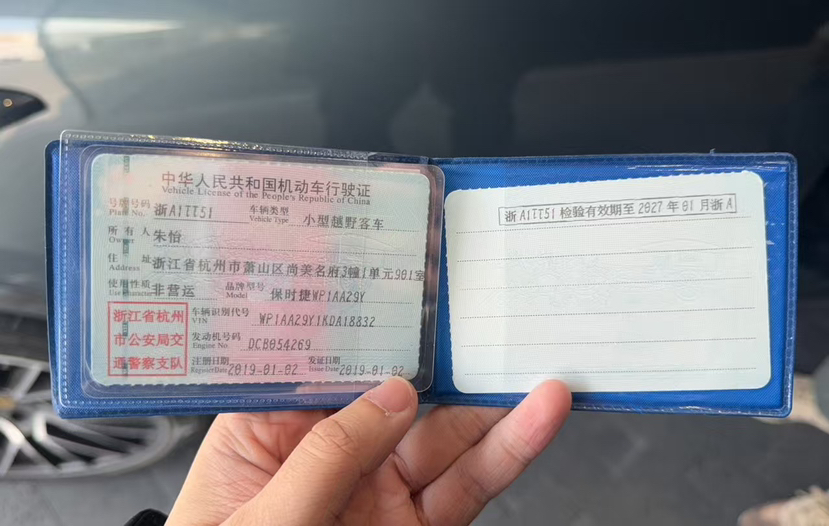 中华人民共和国机动车行驶证
Vehicle License of the People's Republic of China
号牌号码 浙A1TT51 车辆类型 小型越野客车
Plate No. Vehicle Type
所有人 朱怡
Owner
住址 浙江省杭州市萧山区尚美名府3幢1单元901室
Address
使用性质 非营运 品牌型号 保时捷WP1AA29Y
Use Character Model
浙江省杭州
市公安局交
通警察支队
车辆识别代号 WP1AA29Y1KDA18832
VIN
发动机号码 DCB054269
Engine No.
注册日期 2019-01-02 发证日期 2019-01-02
Register Date Issue Date
浙A1TT51检验有效期至2027年01月浙A